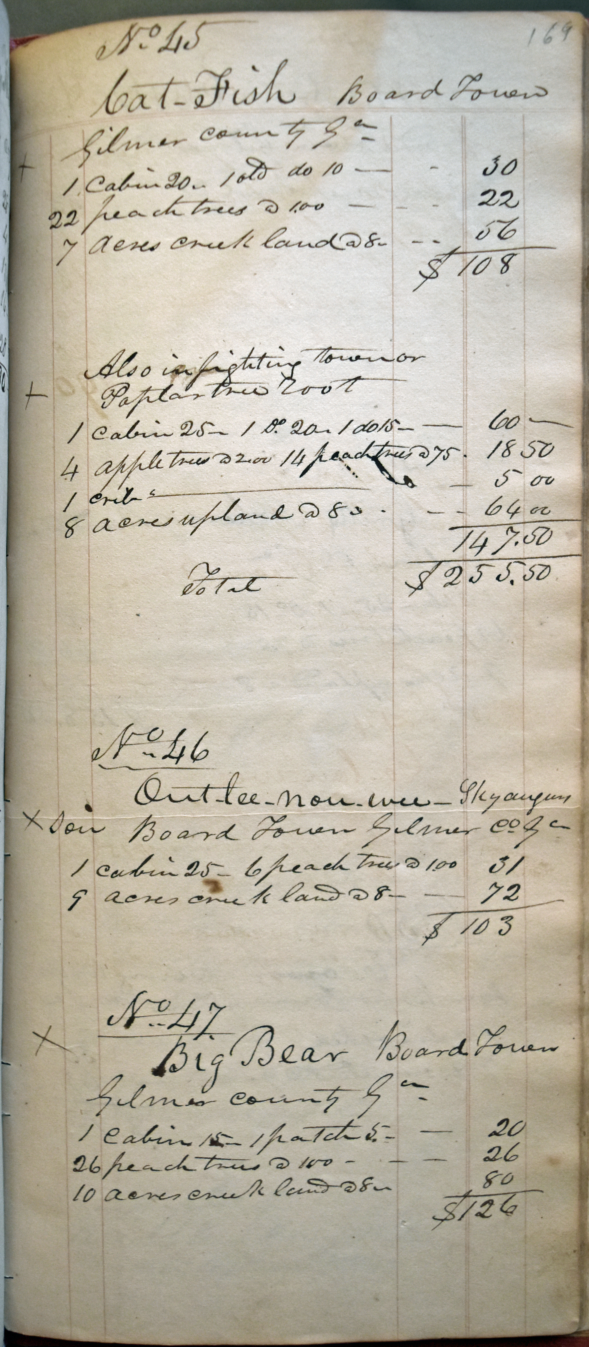 169
No 45
Cat-Fish Board Town
Gilmer county Ga
+ 1 Cabin 20- 1 old do 10 — - 30
22 peach trees @ 1.00 — - - 22
7 acres creek land @ 8- -- 56
$ 108
Also in fighting town or
+ Poplar tree Root
1 cabin 25- 1 Do 20- 1 do 15- — 60 —
4 apple trees @ 2.00 14 peach trees @ 75 - 18 50
1 crib " — 5 00
8 acres upland @ 8 - -- 64 00
147.50
Total $ 255.50
No 46
Out-lee-nou-wee - Skyaugus
X Son Board Town Gilmer co Ga
1 cabin 25- 6 peach trees @ 100 31
9 acres creek land @ 8- — 72
$ 103
No 47
X Big Bear Board Town
Gilmer county Ga
1 Cabin 15- 1 patch 5- — 20
26 peach trees @ 100 - — 26
10 acres creek land @ 8- 80
$126